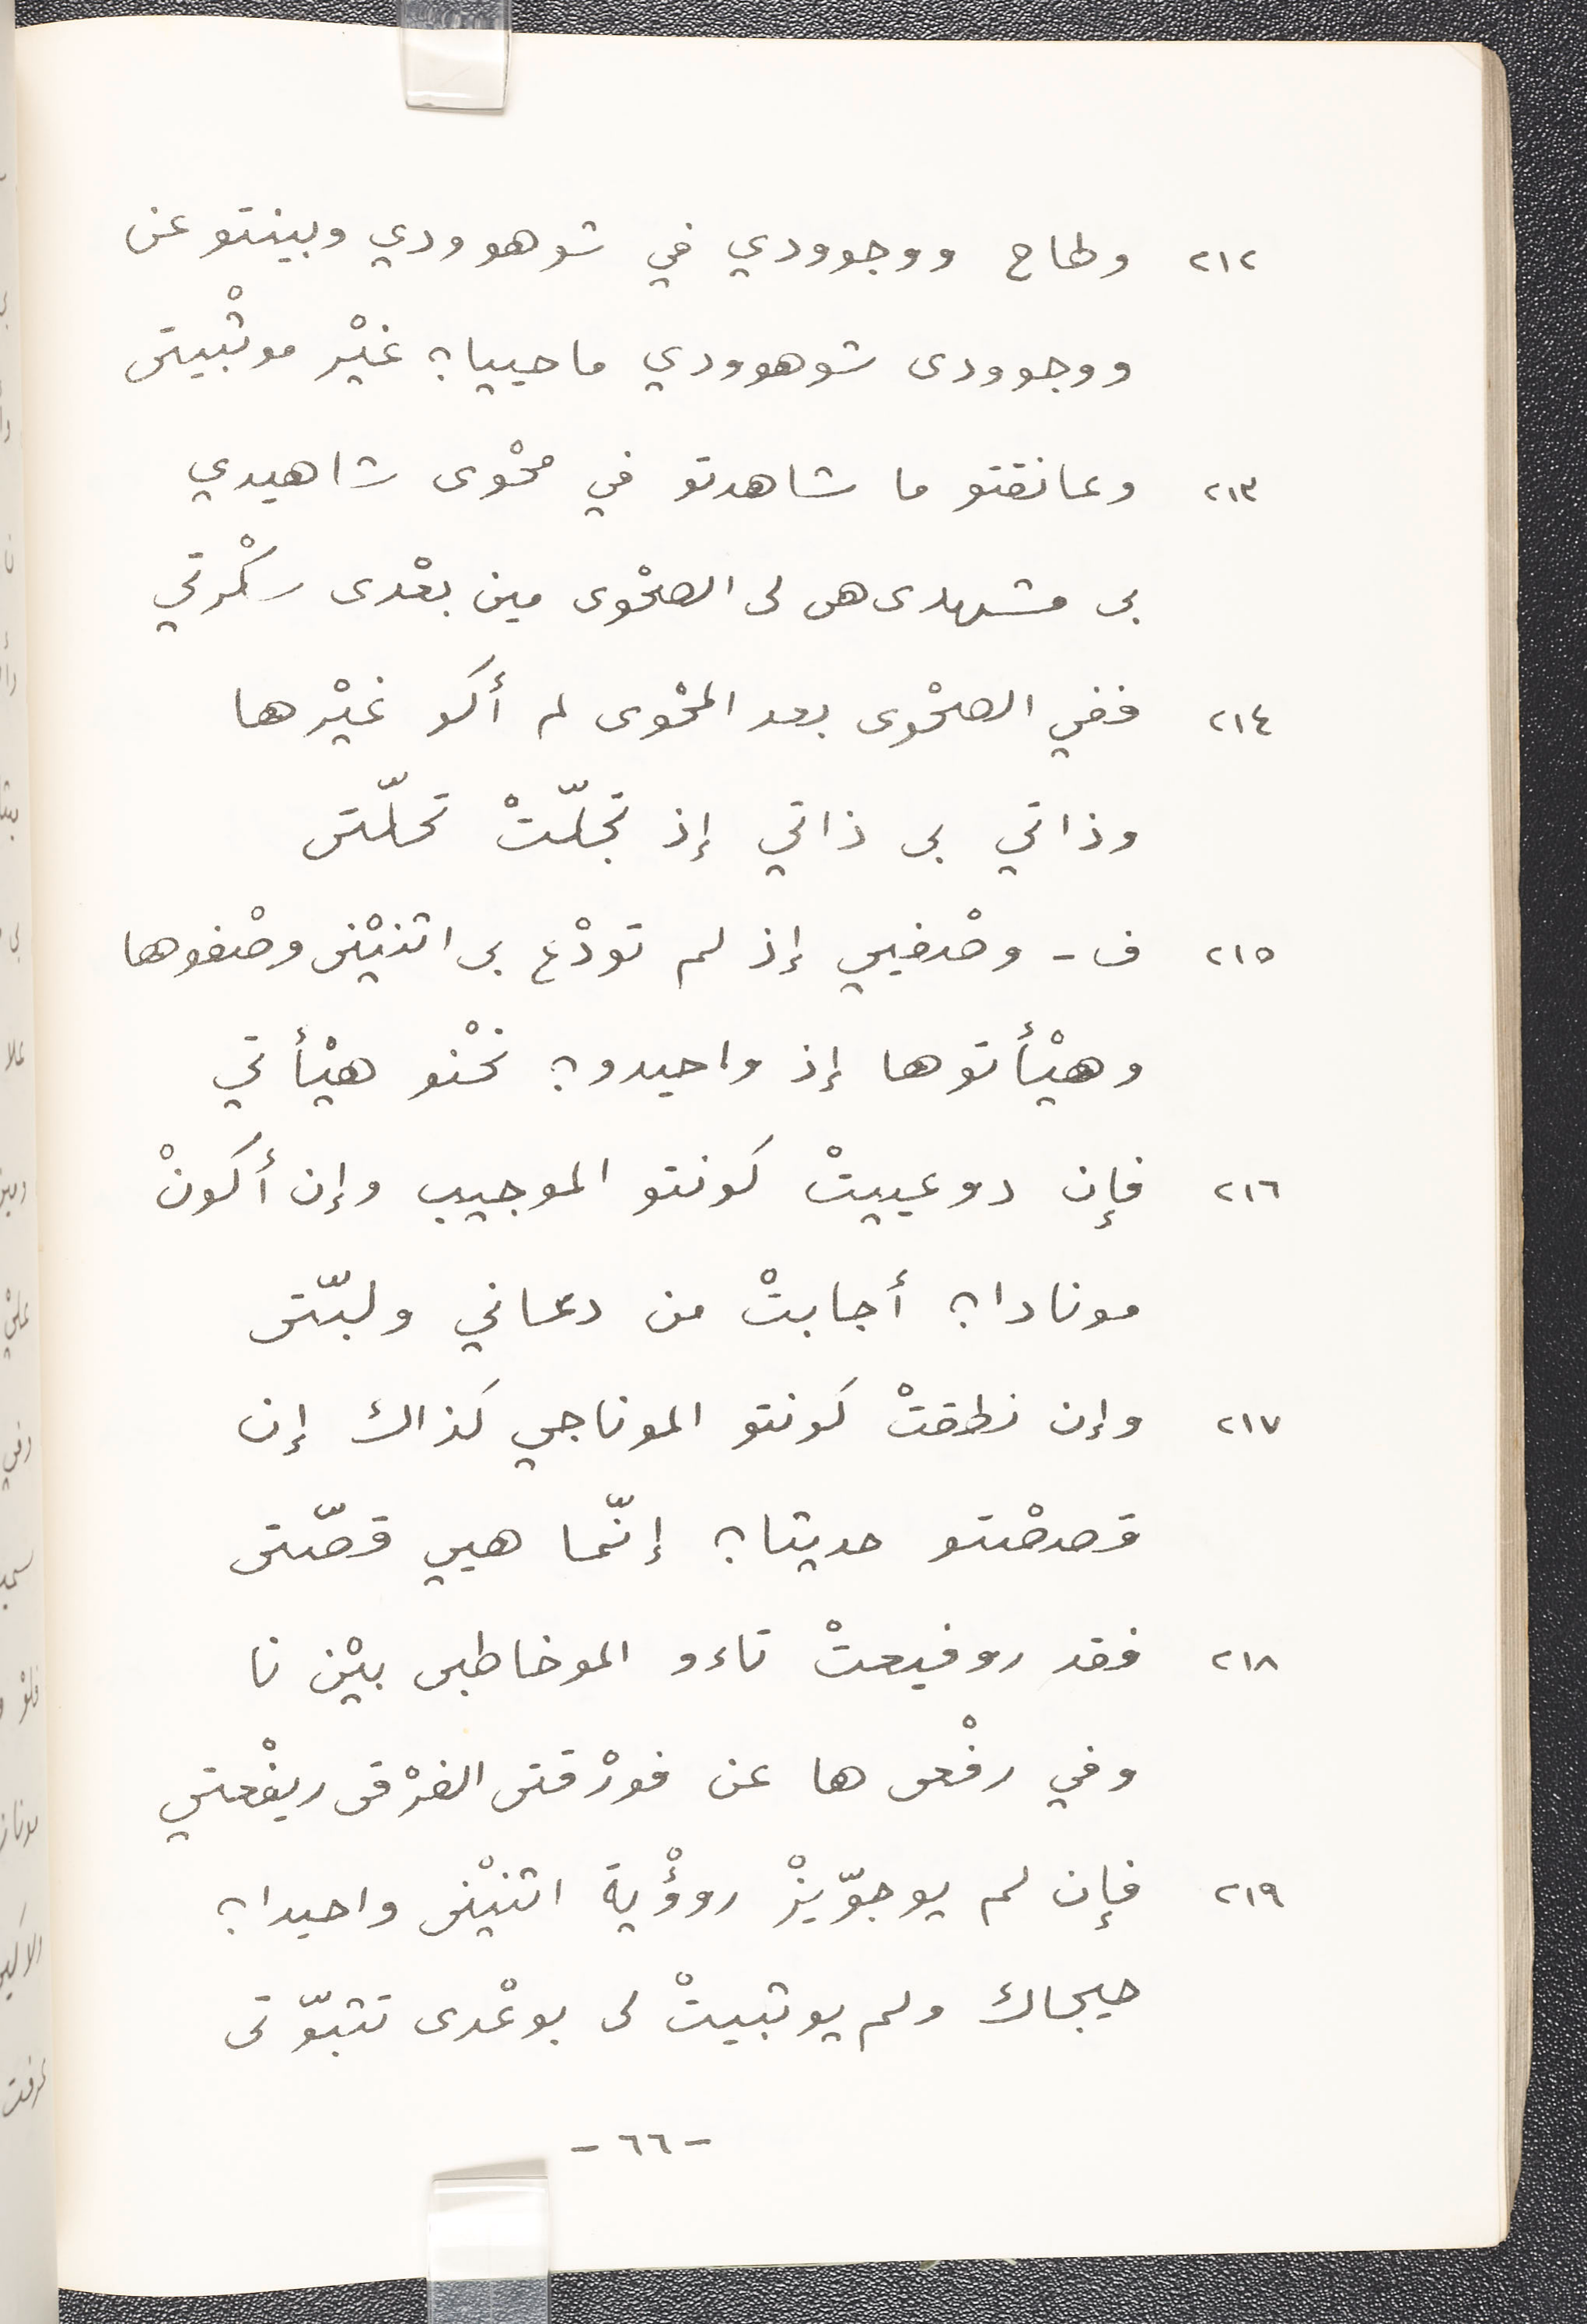 ٢١٢ وطاح ووجوودي في شوهوودي وبينتو عن
ووجوودى شوهوودي ماحييا؟ غيْر موثْبيتى
٢١٣ وعانقتو ما شاهدتو في محْوى شاهيدي
بى مشهدى هى لى الصحْوى مين بعْدى سكْرتي
٢١٤ ففي الصحْوى بعد المحْوى لم أكو غيْرها
وذاتي بى ذاتي إذ تجلّتْ تحلّتى
٢١٥ ف - وصْفيي إذ لم تودْع بى اثنيْنى وصْفوها
وهيْأتوها إذ واحيدو؟ نحْنو هيْأتي
٢١٦ فإن دوعييتْ كونتو الموجيب وإن أكونْ
مونادا؟ أجابتْ من دعاني ولبّتى
٢١٧ وإن نطقتْ كونتو الموناجي كذاك إن
قصصْتو حديثا؟ إنّما هيي قصّتى
٢١٨ فقد روفيعتْ تاءو الموخاطبى بيْن نا
وفي رفْعى ها عن فورْقتى الفرْقى ريفْعتي
٢١٩ فإن لم يوجوّيزْ روؤْية اثنيْنى واحيدا؟
حيجاك ولم يوثبيتْ لى بوعْدى تثبّوتى
- ٦٦ -